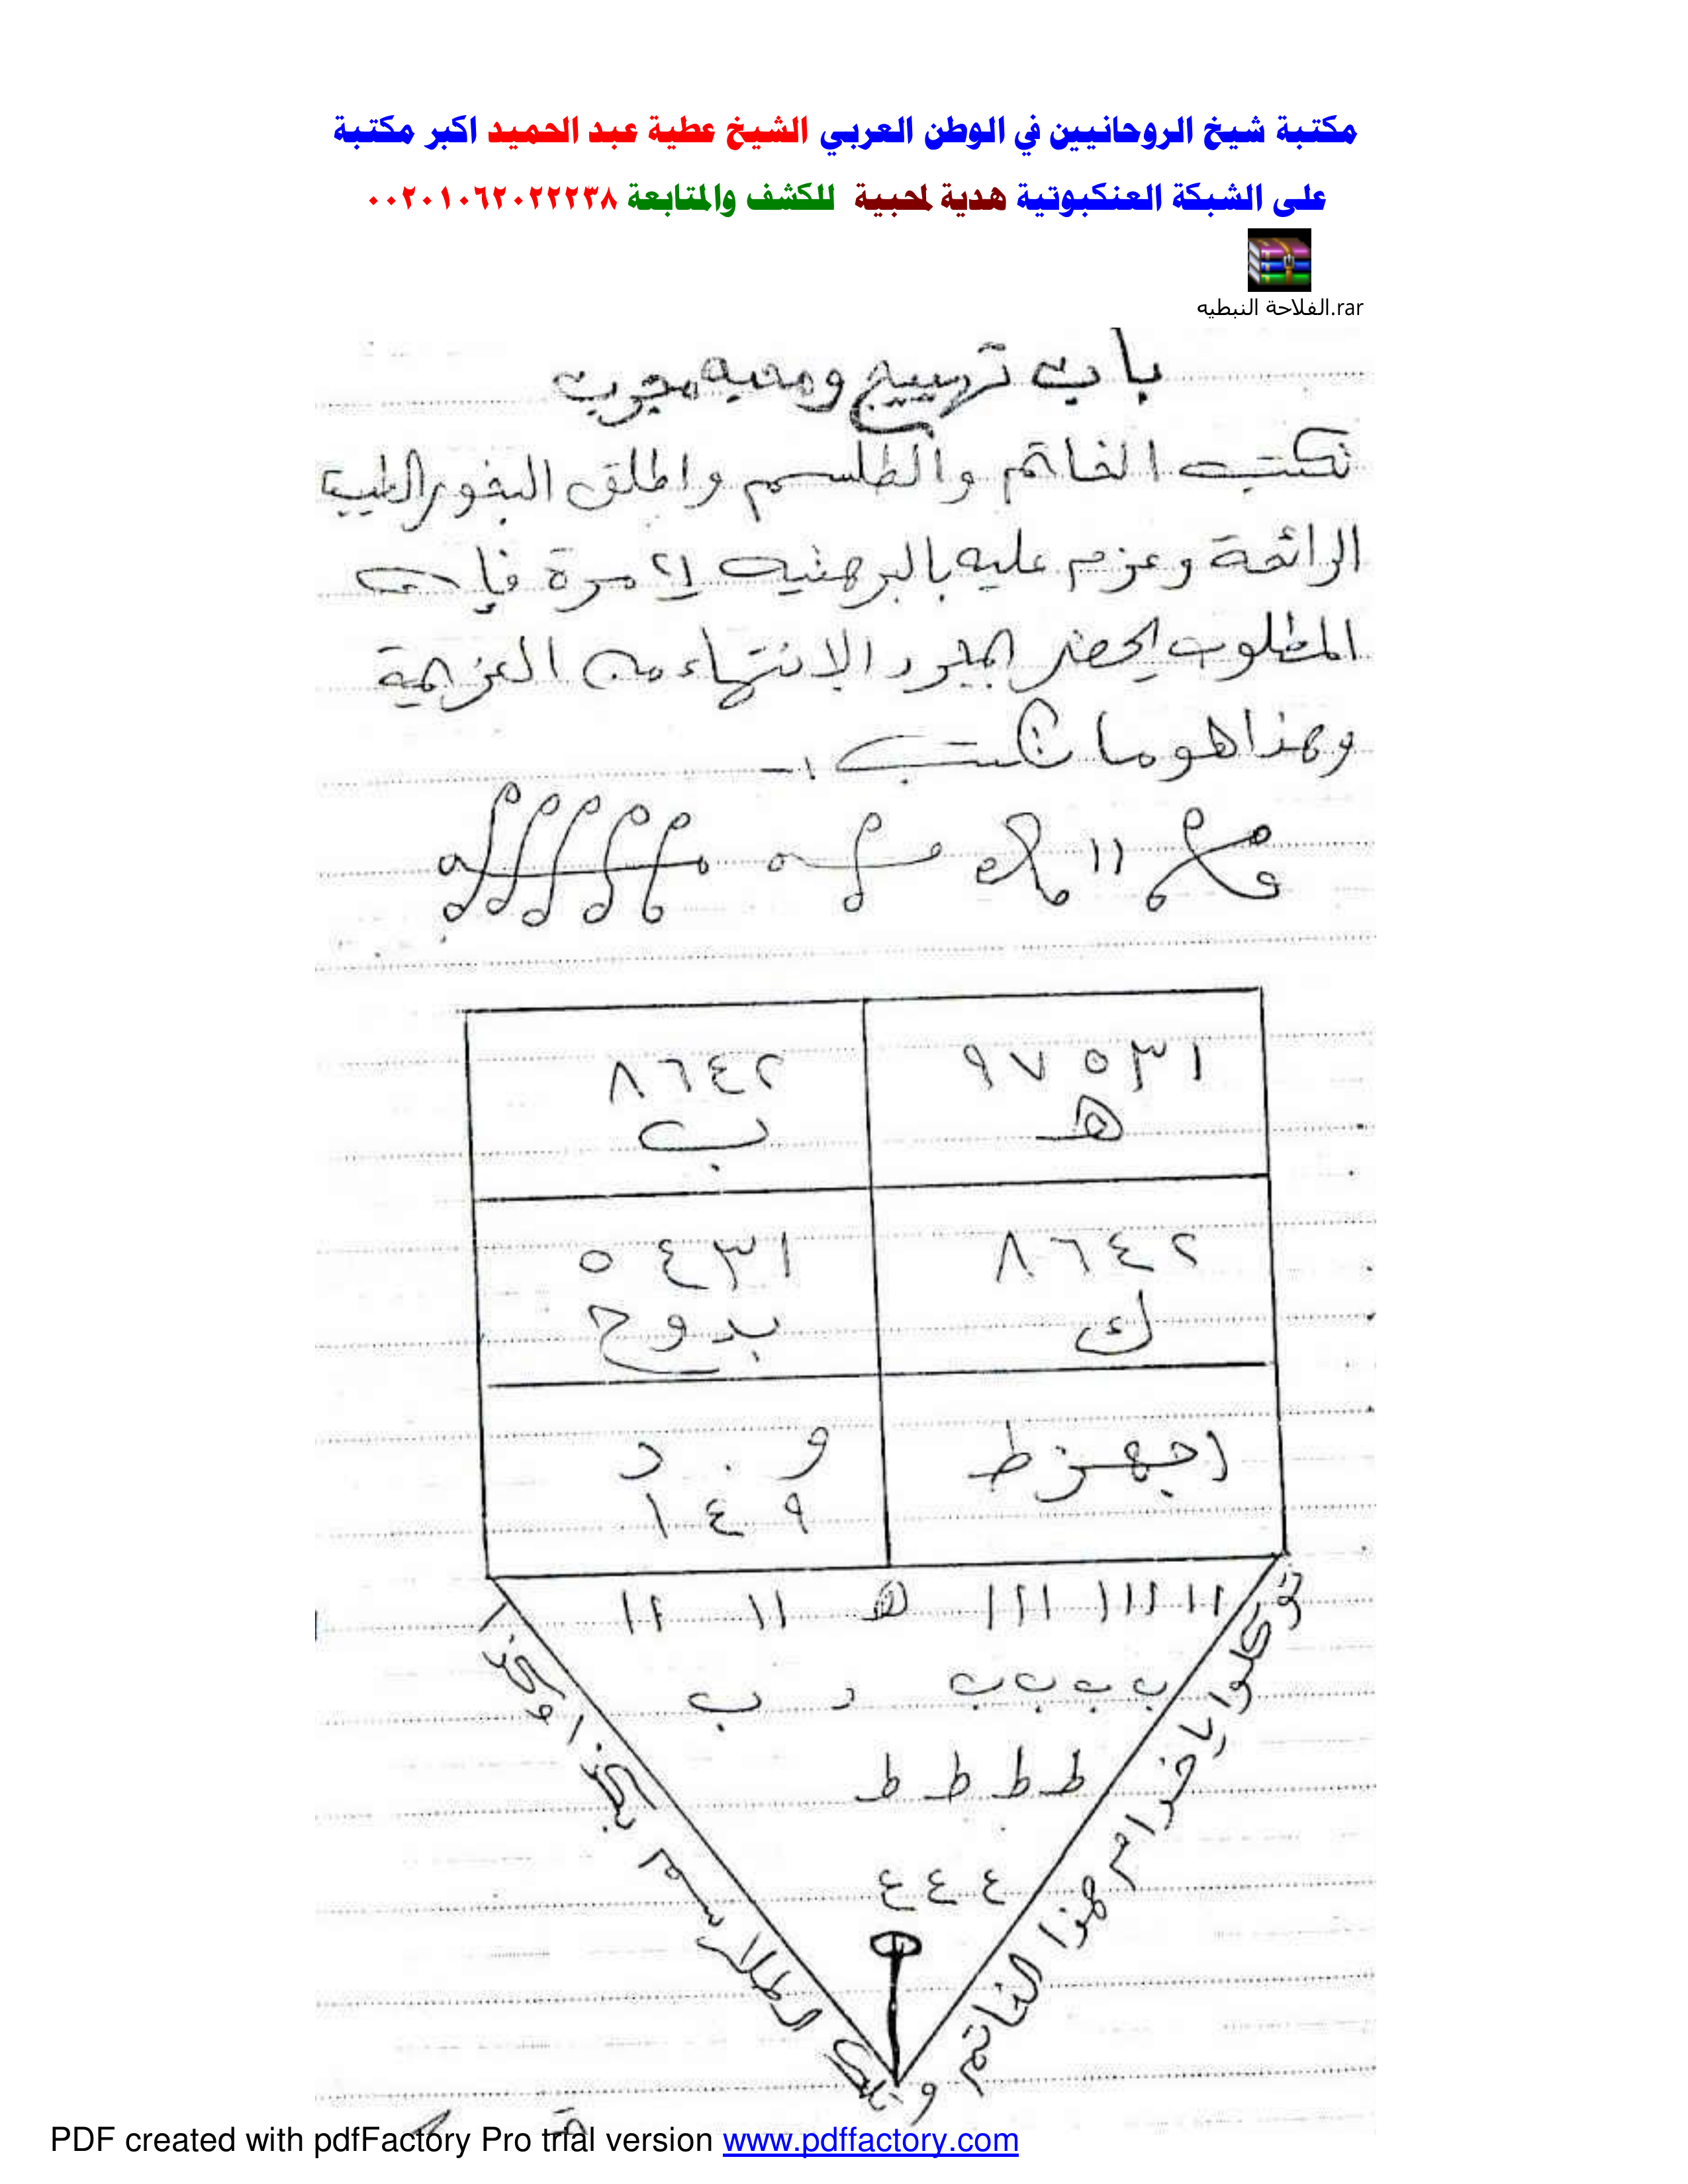 مكتبة شيخ الروحانيين في الوطن العربي الشيخ عطية عبد الحميد اكبر مكتبة
على الشبكة العنكبوتية هدية لمحبية للكشف والمتابعة ٠٠٢٠١٠٦٢٠٢٢٢٣٨
الفلاحة النبطيه.rar
باب تهييج ومحبه مجرب
تكتب الخاتم والطلسم واطلق البخور الطيب
الرائحة وعزم عليه بالبرهتيه مرة فإن
المطلوب يحضر بمجرد الإنتهاء من العزيمة
وهذا هو ما تكتب :-
١ ٣ ٥ ٧ ٩
هـ
٢ ٤ ٦ ٨
ب
٢ ٤ ٦ ٨
ك
١ ٣ ٤ ٥
بدوح
اجهزط
و . د
٩ ٤ ١
١١ ١١١ ١١١ هـ ١١ ١١
ب ب ب ب د ب
ط ط ط ط
ع ع ع
توكلوا يا خدام هذا الخاتم
و الطلاسم
PDF created with pdfFactory Pro trial version www.pdffactory.com